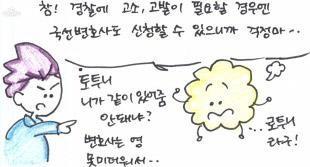 참! 경찰에 고소, 고발이 필요할 경우엔
국선변호사도 신청할 수 있으니까 걱정마..
토투니
니가 같이 있어줌
안돼나?
변호사는 영
못미더워서..
...로투니
라구!